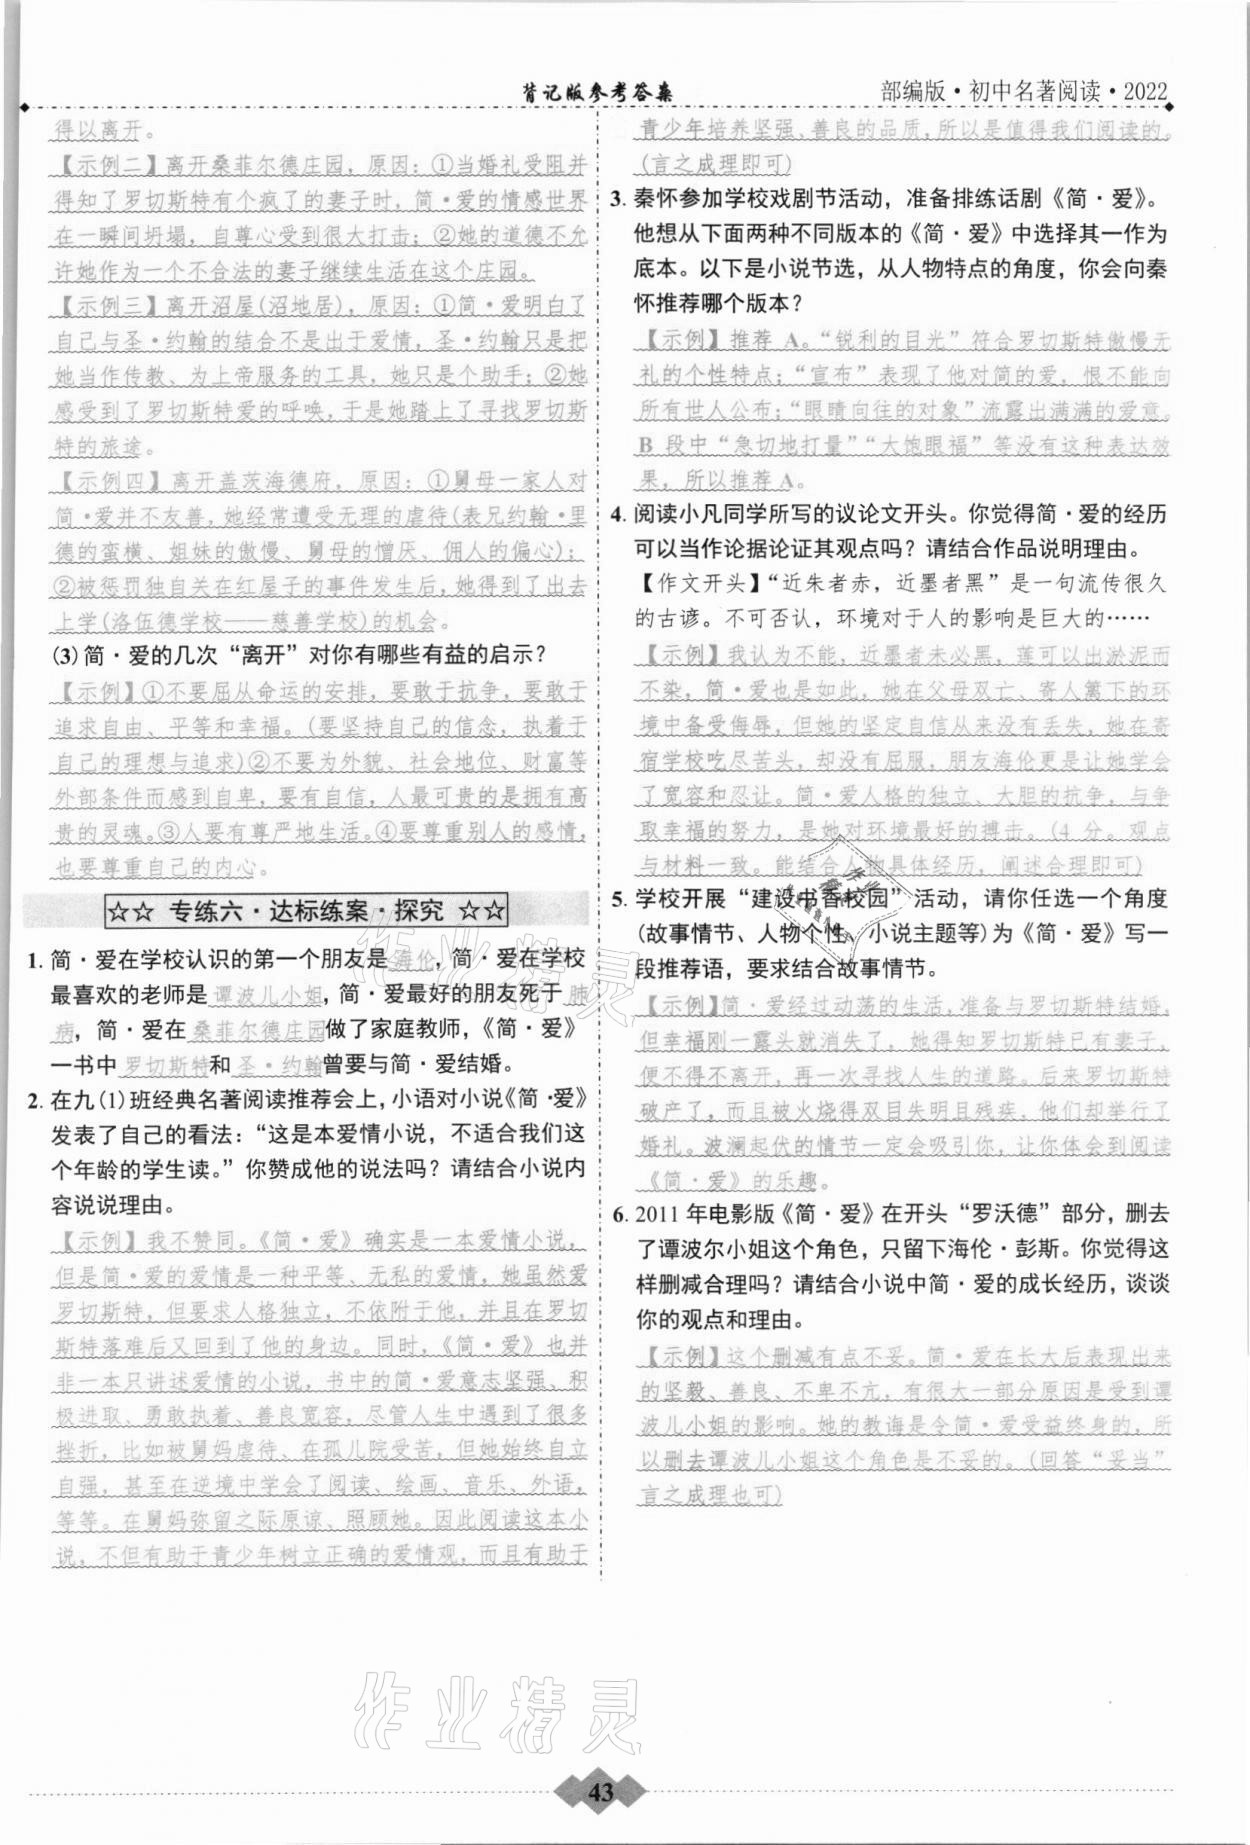 背记版参考答案
部编版·初中名著阅读·2022
得以离开。
【示例二】离开桑菲尔德庄园，原因：①当婚礼受阻并
得知了罗切斯特有个疯了的妻子时，简·爱的情感世界
在一瞬间坍塌，自尊心受到很大打击；②她的道德不允
许她作为一个不合法的妻子继续生活在这个庄园。
【示例三】离开沼屋(沼地居)，原因：①简·爱明白了
自己与圣·约翰的结合不是出于爱情，圣·约翰只是把
她当作传教、为上帝服务的工具，她只是个助手；②她
感受到了罗切斯特爱的呼唤，于是她踏上了寻找罗切斯
特的旅途。
【示例四】离开盖茨海德府，原因：①舅母一家人对
简·爱并不友善，她经常遭受无理的虐待(表兄约翰·里
德的蛮横、姐妹的傲慢、舅母的憎厌、佣人的偏心)；
②被惩罚独自关在红屋子的事件发生后，她得到了出去
上学(洛伍德学校——慈善学校)的机会。
(3)简·爱的几次“离开”对你有哪些有益的启示？
【示例】①不要屈从命运的安排，要敢于抗争，要敢于
追求自由、平等和幸福。(要坚持自己的信念，执着于
自己的理想与追求)②不要为外貌、社会地位、财富等
外部条件而感到自卑，要有自信，人最可贵的是拥有高
贵的灵魂。③人要有尊严地生活。④要尊重别人的感情，
也要尊重自己的内心。
☆☆ 专练六·达标练案·探究 ☆☆
1. 简·爱在学校认识的第一个朋友是 海伦，简·爱在学校
最喜欢的老师是 谭波儿小姐，简·爱最好的朋友死于 肺
病，简·爱在 桑菲尔德庄园做了家庭教师，《简·爱》
一书中 罗切斯特和 圣·约翰曾要与简·爱结婚。
2. 在九(1)班经典名著阅读推荐会上，小语对小说《简·爱》
发表了自己的看法：“这是本爱情小说，不适合我们这
个年龄的学生读。”你赞成他的说法吗？请结合小说内
容说说理由。
【示例】我不赞同。《简·爱》确实是一本爱情小说，
但是简·爱的爱情是一种平等、无私的爱情，她虽然爱
罗切斯特，但要求人格独立，不依附于他，并且在罗切
斯特落难后又回到了他的身边。同时，《简·爱》也并
非一本只讲述爱情的小说，书中的简·爱意志坚强、积
极进取、勇敢执着、善良宽容，尽管人生中遇到了很多
挫折，比如被舅妈虐待、在孤儿院受苦，但她始终自立
自强，甚至在逆境中学会了阅读、绘画、音乐、外语，
等等。在舅妈弥留之际原谅、照顾她。因此阅读这本小
说，不但有助于青少年树立正确的爱情观，而且有助于
青少年培养坚强、善良的品质，所以是值得我们阅读的。
(言之成理即可)
3. 秦怀参加学校戏剧节活动，准备排练话剧《简·爱》。
他想从下面两种不同版本的《简·爱》中选择其一作为
底本。以下是小说节选，从人物特点的角度，你会向秦
怀推荐哪个版本？
【示例】推荐 A。“锐利的目光”符合罗切斯特傲慢无
礼的个性特点；“宣布”表现了他对简的爱，恨不能向
所有世人公布；“眼睛向往的对象”流露出满满的爱意。
B 段中“急切地打量”“大饱眼福”等没有这种表达效
果，所以推荐 A。
4. 阅读小凡同学所写的议论文开头。你觉得简·爱的经历
可以当作论据论证其观点吗？请结合作品说明理由。
【作文开头】“近朱者赤，近墨者黑”是一句流传很久
的古谚。不可否认，环境对于人的影响是巨大的……
【示例】我认为不能，近墨者未必黑，莲可以出淤泥而
不染，简·爱也是如此，她在父母双亡、寄人篱下的环
境中备受侮辱，但她的坚定自信从来没有丢失，她在寄
宿学校吃尽苦头，却没有屈服，朋友海伦更是让她学会
了宽容和忍让。简·爱人格的独立、大胆的抗争，与争
取幸福的努力，是她对环境最好的搏击。(4 分。观点
与材料一致。能结合人物具体经历，阐述合理即可)
5. 学校开展“建设书香校园”活动，请你任选一个角度
(故事情节、人物个性、小说主题等)为《简·爱》写一
段推荐语，要求结合故事情节。
【示例】简·爱经过动荡的生活，准备与罗切斯特结婚，
但幸福刚一露头就消失了，她得知罗切斯特已有妻子，
便不得不离开，再一次寻找人生的道路。后来罗切斯特
破产了，而且被火烧得双目失明且残疾，他们却举行了
婚礼。波澜起伏的情节一定会吸引你，让你体会到阅读
《简·爱》的乐趣。
6. 2011 年电影版《简·爱》在开头“罗沃德”部分，删去
了谭波尔小姐这个角色，只留下海伦·彭斯。你觉得这
样删减合理吗？请结合小说中简·爱的成长经历，谈谈
你的观点和理由。
【示例】这个删减有点不妥。简·爱在长大后表现出来
的坚毅、善良、不卑不亢，有很大一部分原因是受到谭
波儿小姐的影响。她的教诲是令简·爱受益终身的，所
以删去谭波儿小姐这个角色是不妥的。(回答“妥当”
言之成理也可)
作业精灵
作业精灵
43